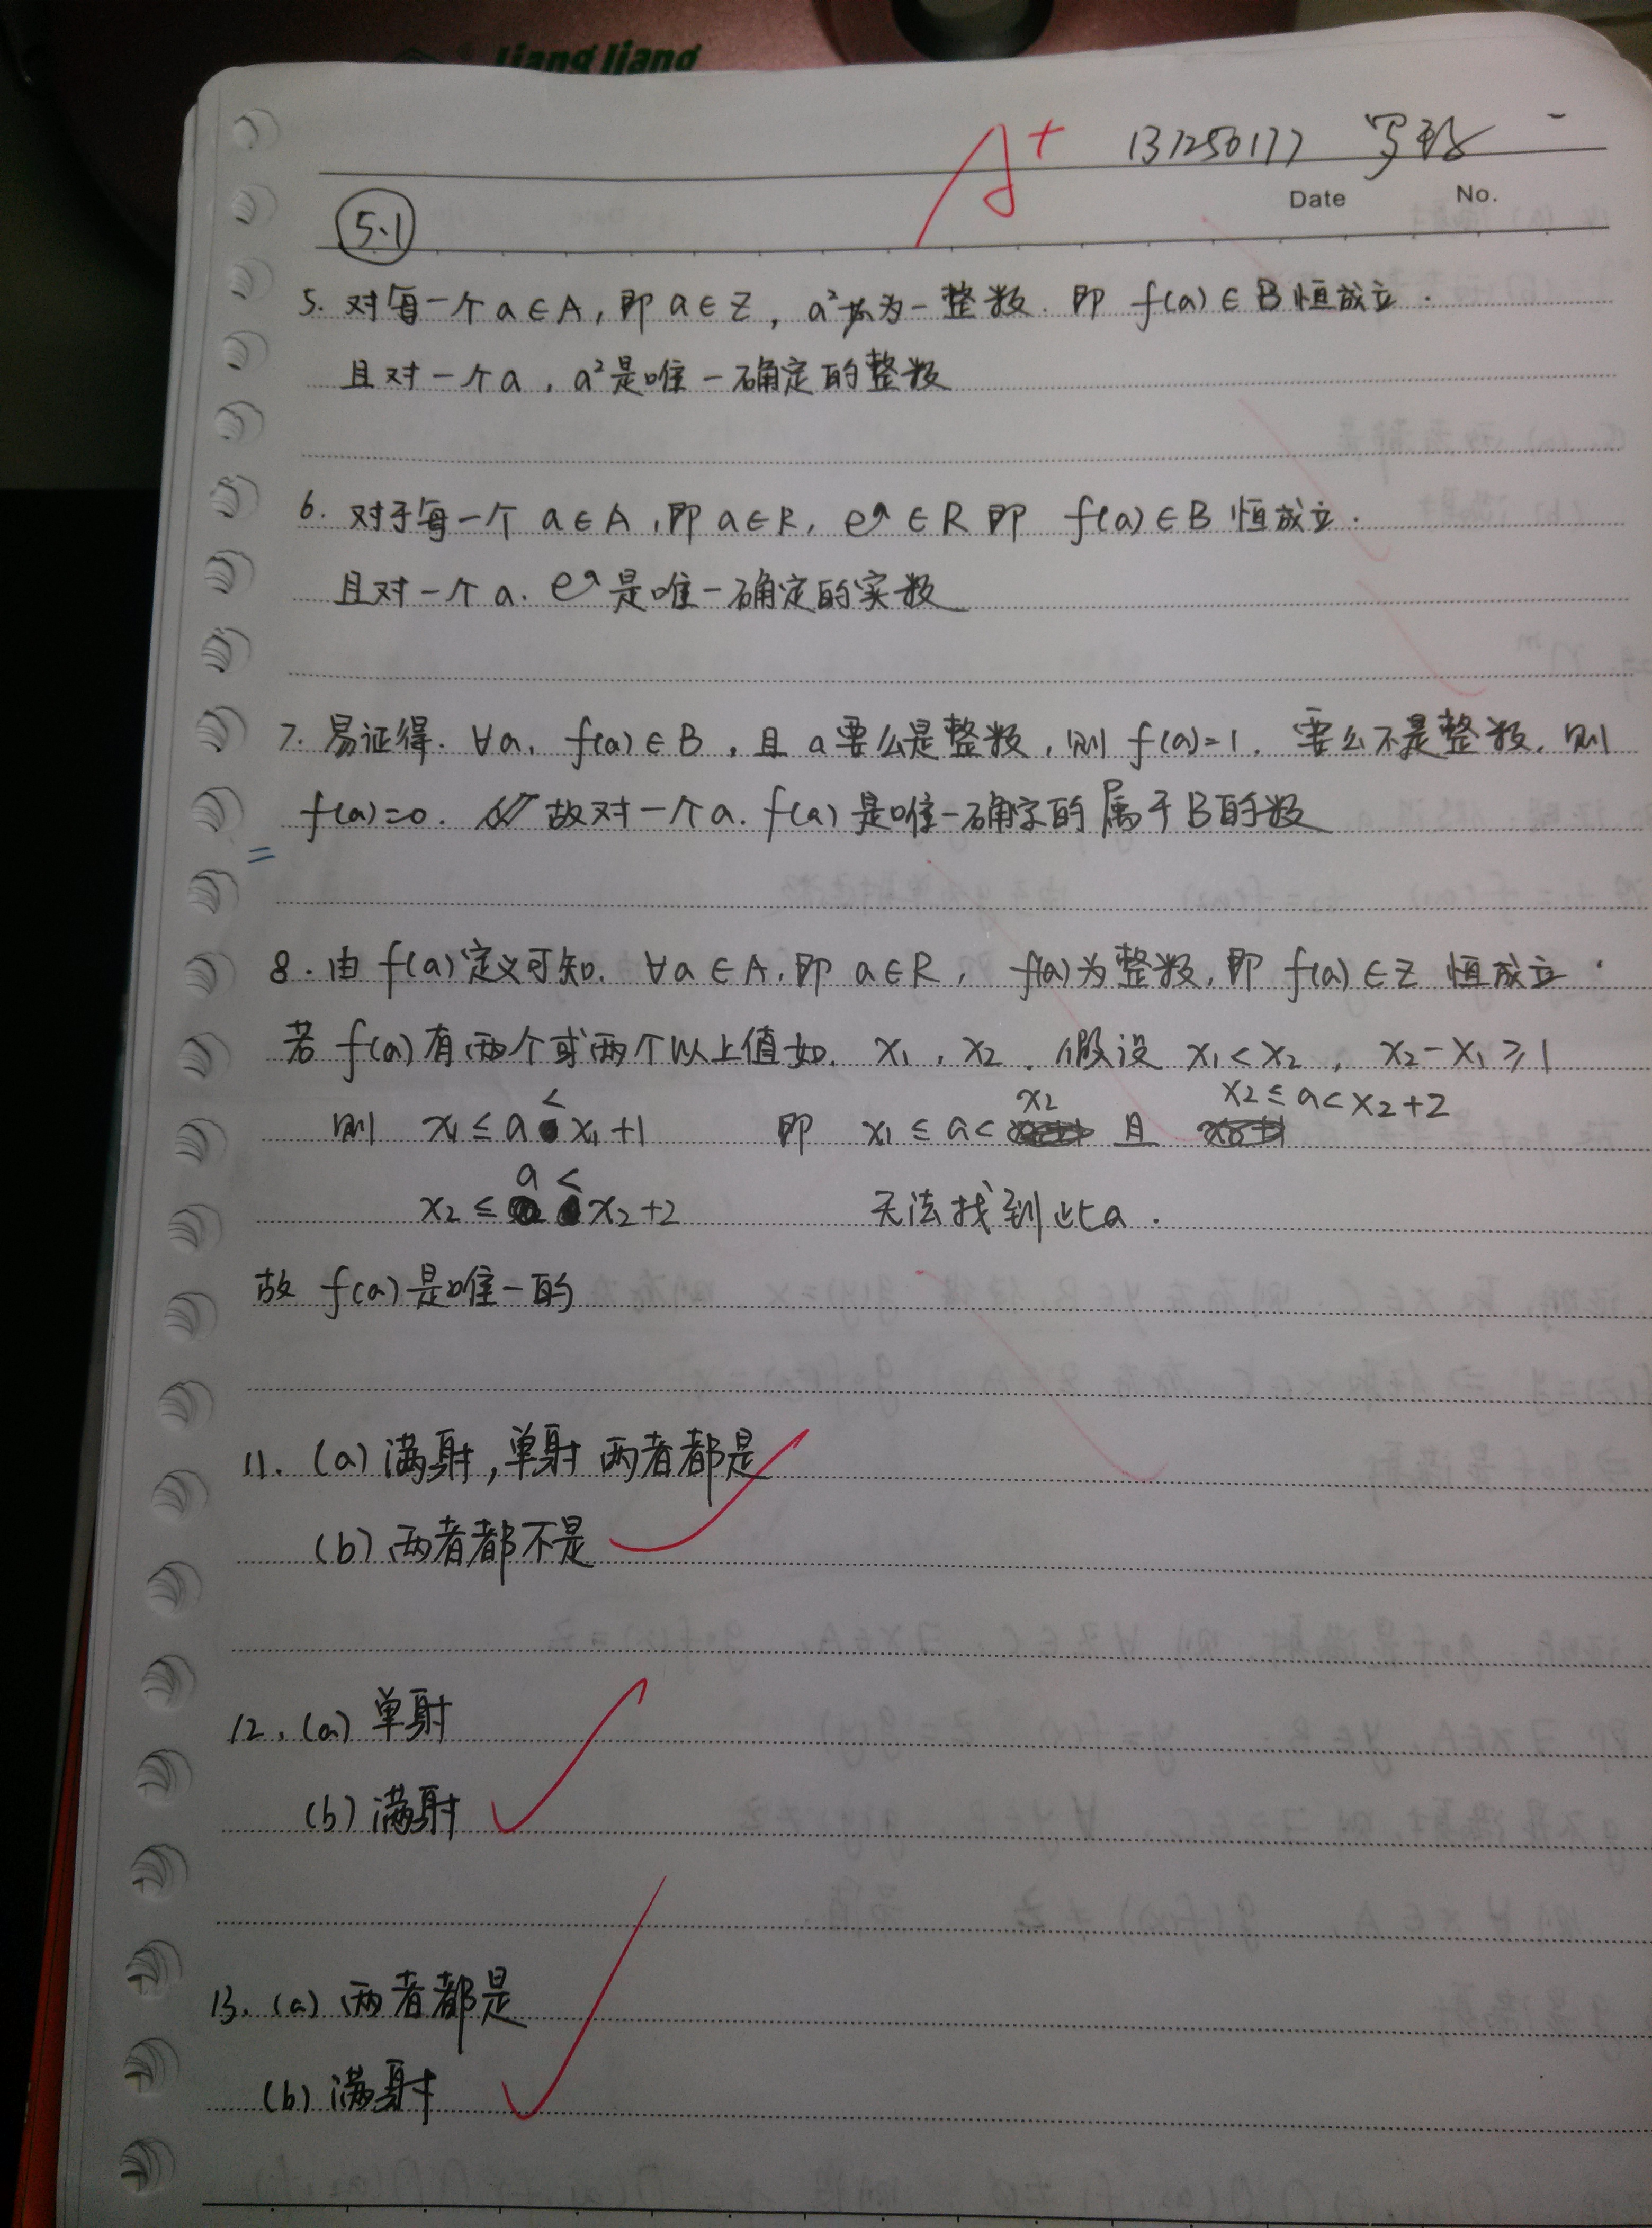 liang liang
A+ 131250177
Date No.
5.1
5. 对每一个a∈A,即a∈Z,a²为一整数.即 f(a)∈B恒成立.
且对一个a,a²是唯一确定的整数
6. 对于每一个a∈A,即a∈R,eᵃ∈R即 f(a)∈B 恒成立.
且对一个a.eᵃ是唯一确定的实数
7. 易证得.∀a,f(a)∈B,且a要么是整数,则f(a)=1.要么不是整数.则
f(a)=0. 故对一个a.f(a)是唯一确定的属于B的数
=
8. 由f(a)定义可知.∀a∈A,即a∈R,f(a)为整数,即f(a)∈Z 恒成立.
若f(a)有两个或两个以上值如.x₁,x₂.假设x₁<x₂,x₂-x₁≥1
则 x₁≤a<x₁+1 即 x₁≤a<x₂ 且 x₂≤a<x₂+2
x₂≤a<x₂+2 无法找到此a.
故f(a)是唯一的
11. (a)满射,单射 两者都是
(b)两者都不是
12. (a)单射
(b)满射
13. (a)两者都是
(b)满射